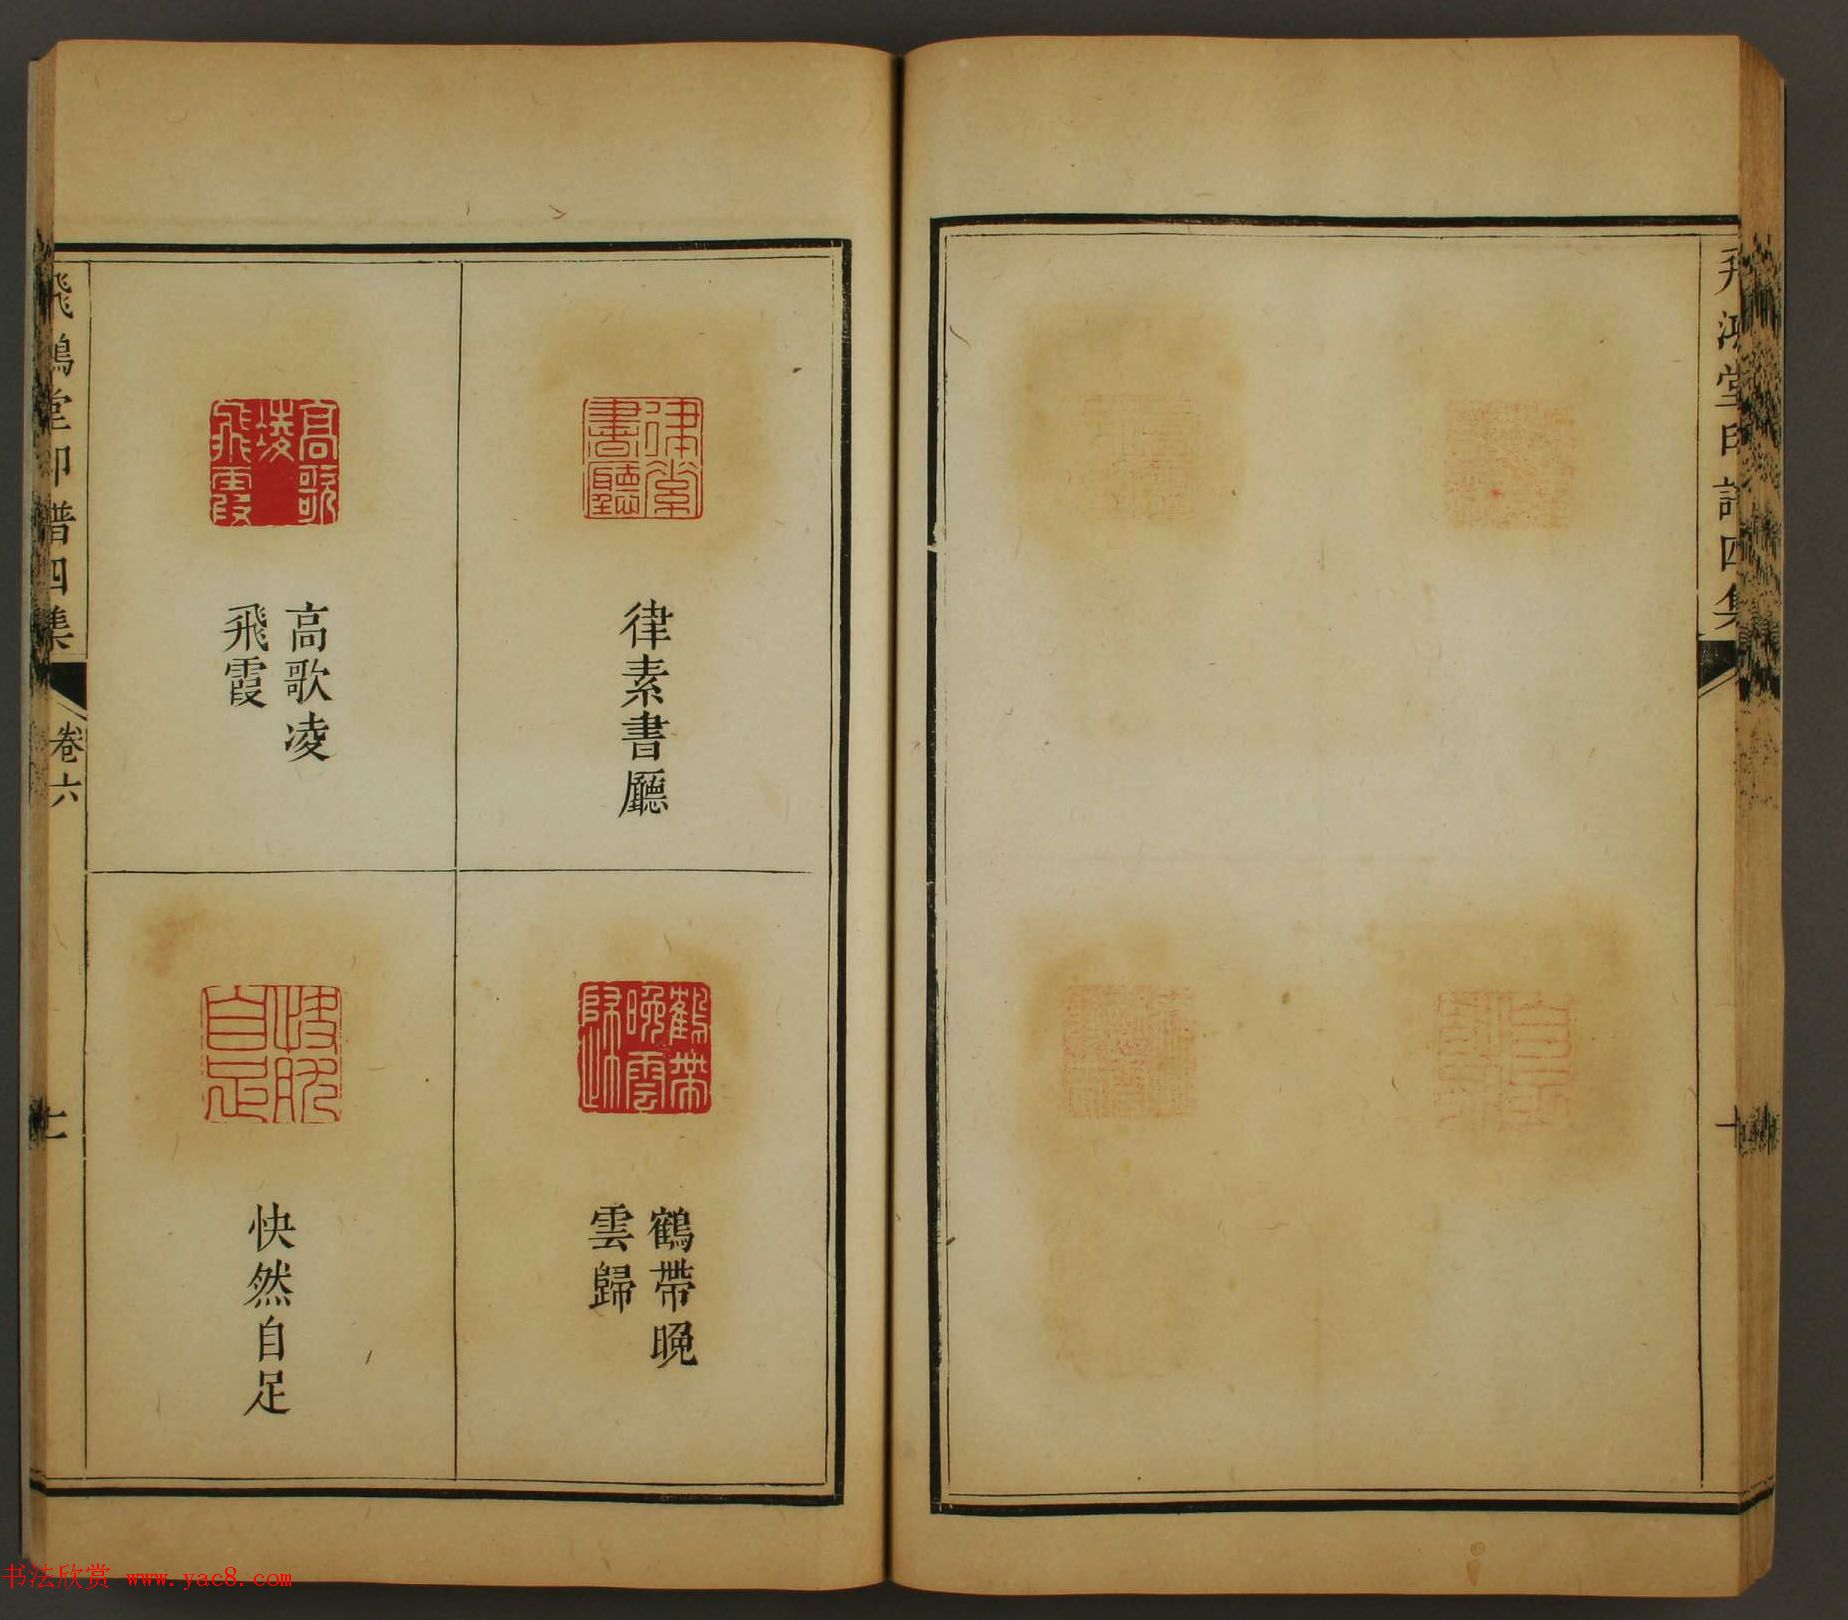 飛鴻堂印譜四集
律素書廳
高歌凌
飛霞
鶴帶晚
雲歸
快然自足
飛鴻堂印譜四集
卷六
书法欣赏 www.yac8.com